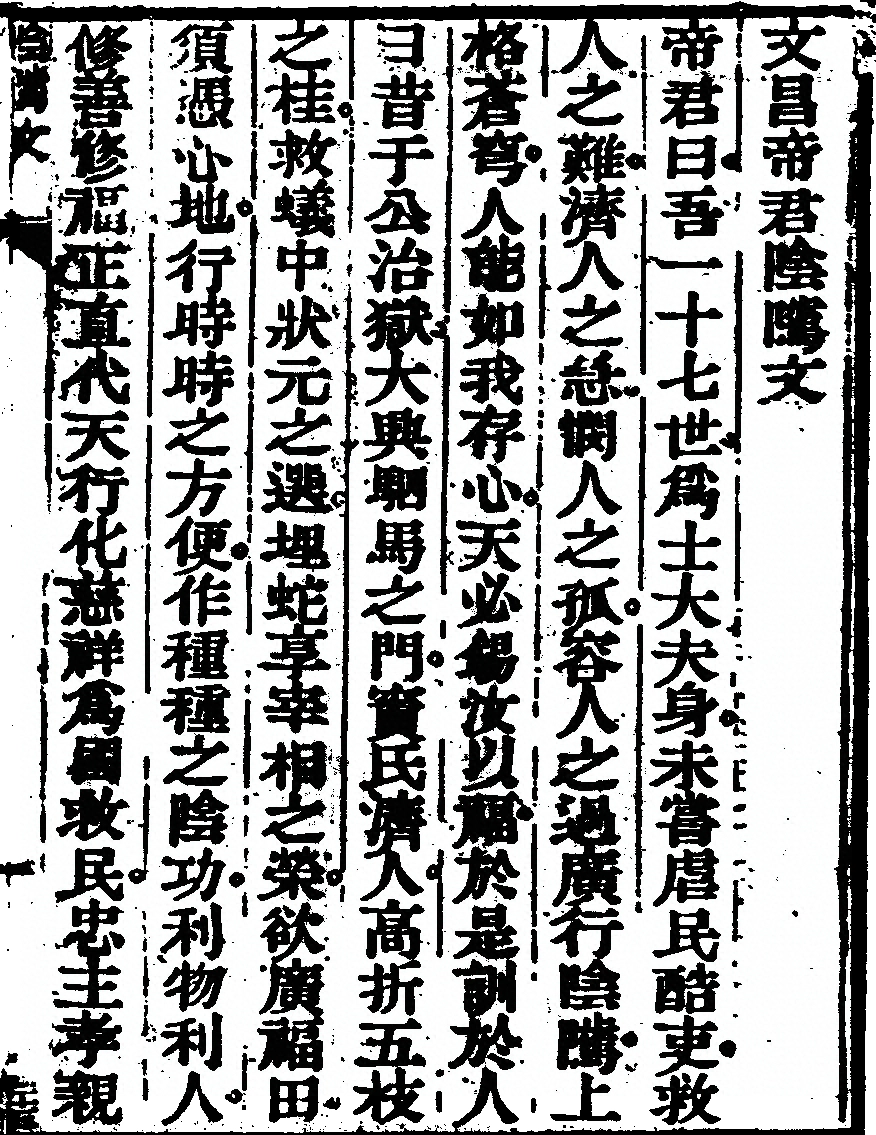 文昌帝君陰騭文
帝君曰吾一十七世爲士大夫身未嘗虐民酷吏救
人之難濟人之急憫人之孤容人之過廣行陰騭上
格蒼穹人能如我存心天必錫汝以福於是訓於人
曰昔于公治獄大興駟馬之門竇氏濟人高折五枝
之桂救蟻中狀元之選埋蛇享宰相之榮欲廣福田
須憑心地行時時之方便作種種之陰功利物利人
修善修福正直代天行化慈祥爲國救民忠主孝親
陰騭文